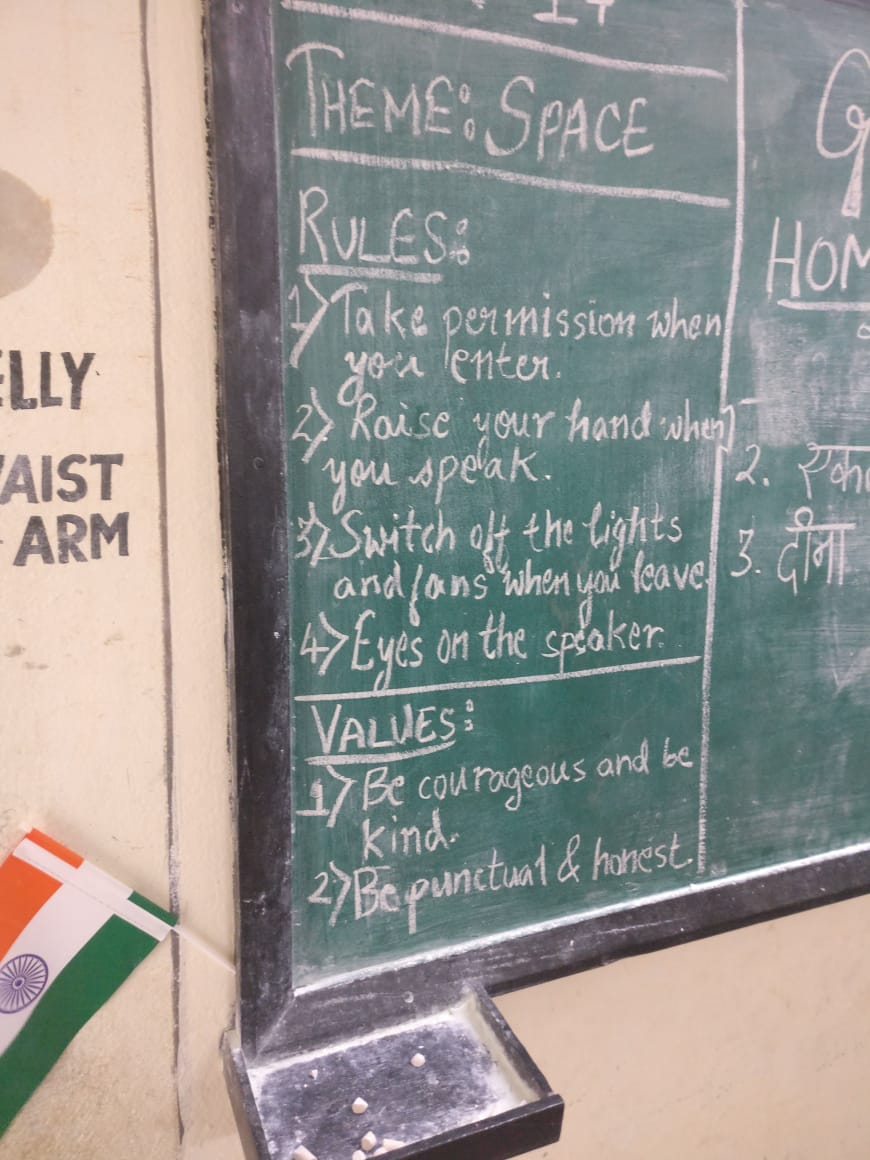 17
THEME: SPACE
RULES:
1) Take permission when
you enter.
2) Raise your hand when
you speak.
3) Switch off the lights
and fans when you leave.
4) Eyes on the speaker.
VALUES:
1) Be courageous and be
kind.
2) Be punctual & honest.
G
HOM
2. एक
3. दीना
ELLY
WAIST
ARM